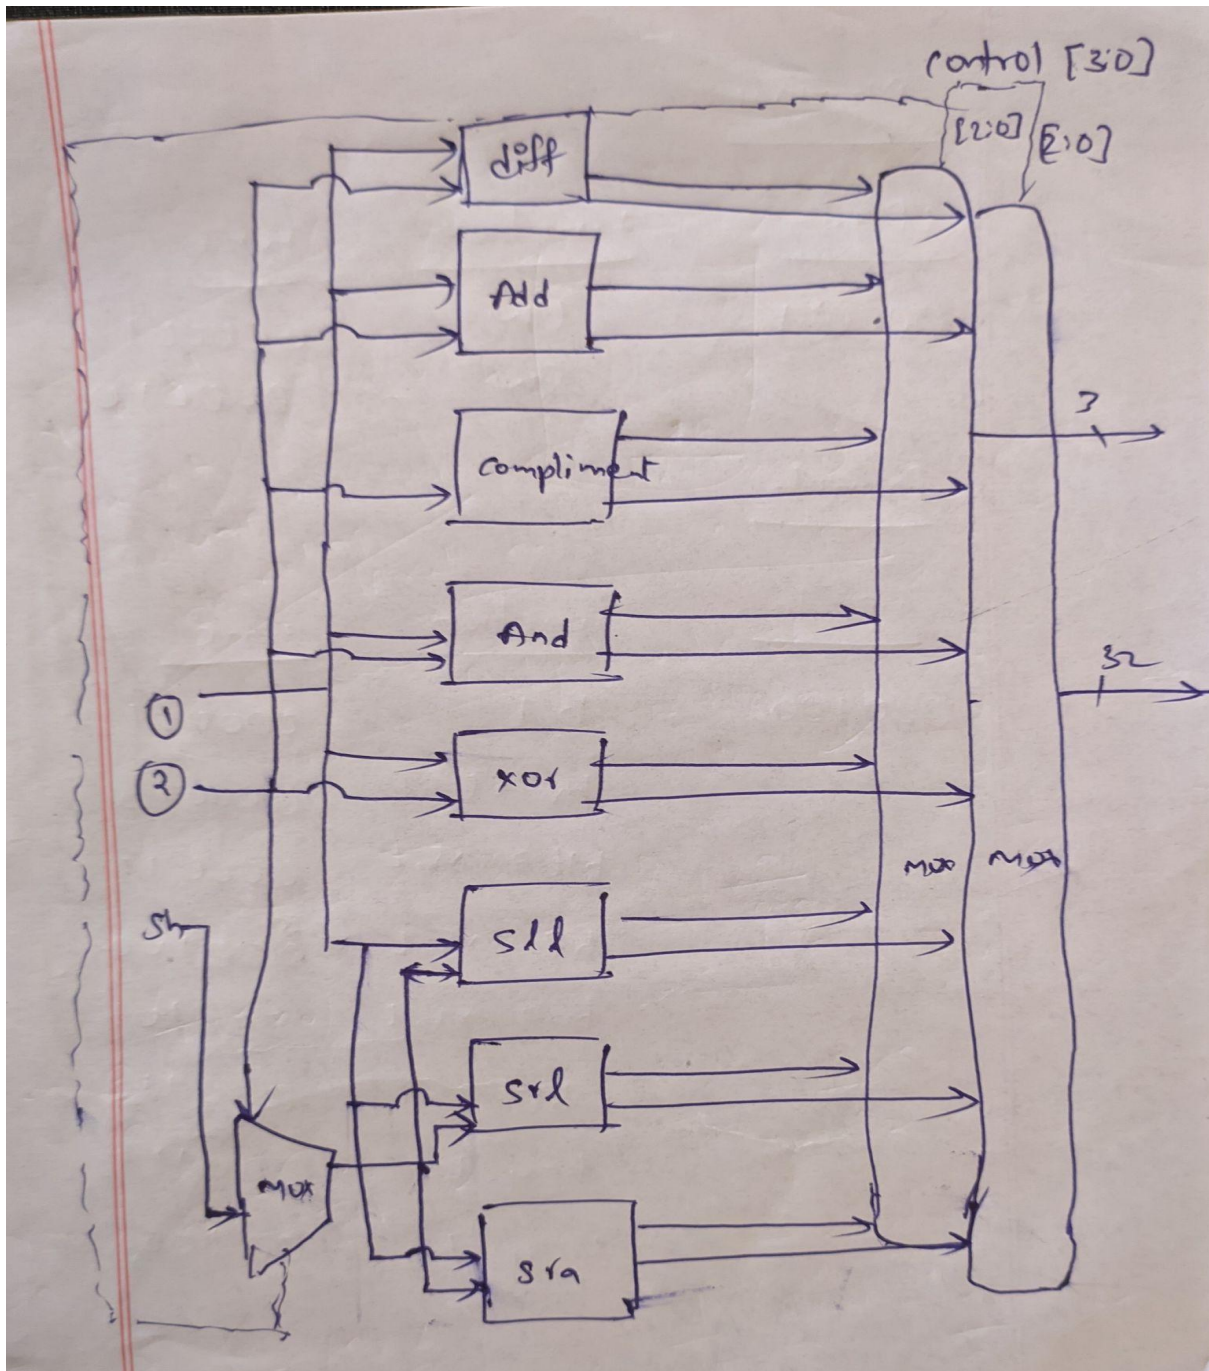 control [3:0]
[2:0]
[2:0]
diff
Add
3
compliment
And
32
1
2
xor
mux
mux
sh
sll
srl
mux
sra